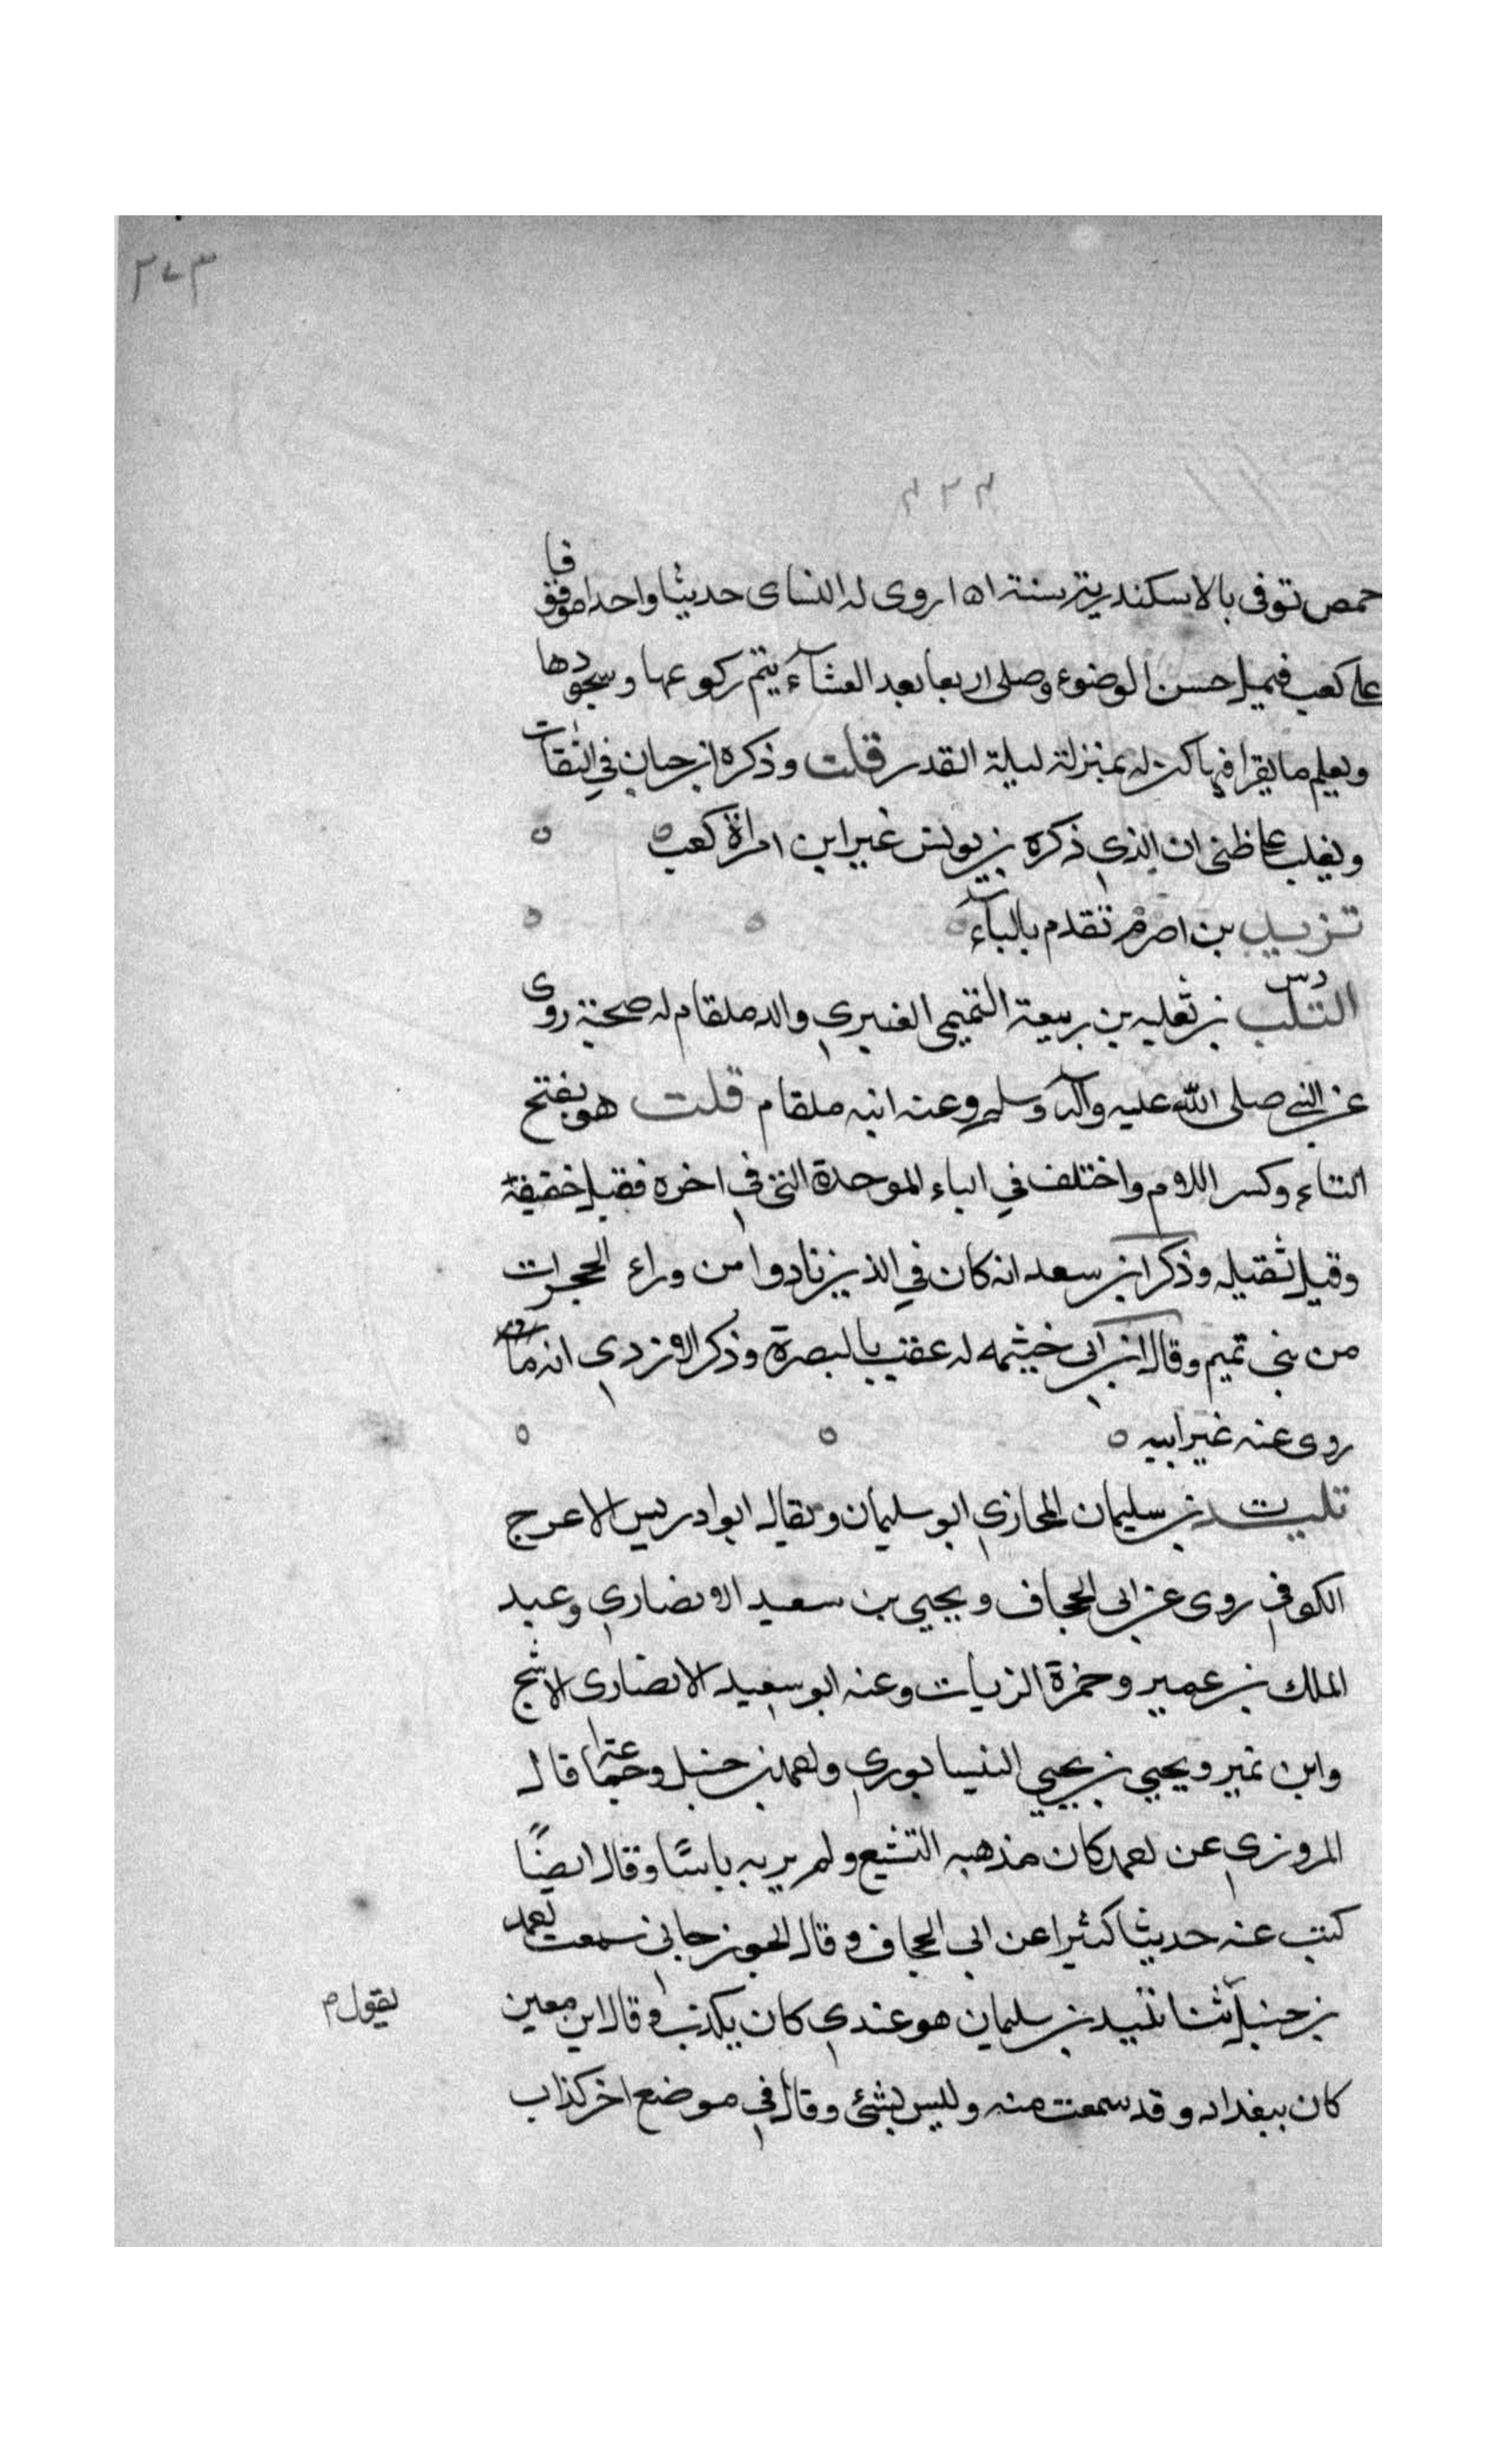 ٣٧٣
٣٢٣
حمص توفى بالاسكندرية سنة ١٥١ روى له النساى حديثا واحدا موقوفا
على كعب فيمن احسن الوضوء وصلى اربعا بعد العشآء يتم ركوعها وسجودها
ويعلم ما يقرا فيها كن له بمنزلة ليلة القدر قلت وذكره ابن حبان في الثقات
ويغلب على ظنى ان الذي ذكره بن يونس غير ابن امراة كعب
تزيد بن اصرم تقدم بالبآء
التلب بن ثعلبه بن ربيعة التميمي العنبري والد ملقام له صحبة روى
دس
عن النبي صلى الله عليه وآله وسلم وعنه ابنه ملقام قلت هو بفتح
التاء وكسر اللام واختلف في الباء الموحدة التي في اخره فقيل خفيفة
وقيل ثقيله وذكر ابن سعد انه كان في الذين نادوا من وراء الحجرات
من بني تميم وقال ابن ابي خيثمه له عقب بالبصرة وذكر الازدي انه ما
روى عنه غير ابيه
تليد بن سليمان المحازي ابو سليمان ويقال ابو ادريس الاعرج
ت
الكوفي روى عن ابي الحجاف ويحيى بن سعيد الانصاري وعبد
الملك بن عمير وحمزة الزيات وعنه ابو سعيد الانصارى الاشج
وابن نمير ويحيى بن يحيى النيسابوري واحمد بن حنبل وجماعة قال
المروزي عن احمد كان مذهبه التشيع ولم ير به باسًا وقال ايضًا
كتب عنه حديثا كثيرا عن ابي الحجاف وقال الجوزجاني سمعت احمد
بن حنبل ثنا تليد بن سليمان هو عندي كان يكذب وقال ابن معين
يقول م
كان ببغداد وقد سمعت منه وليس بشئ وقال في موضع اخر كذاب